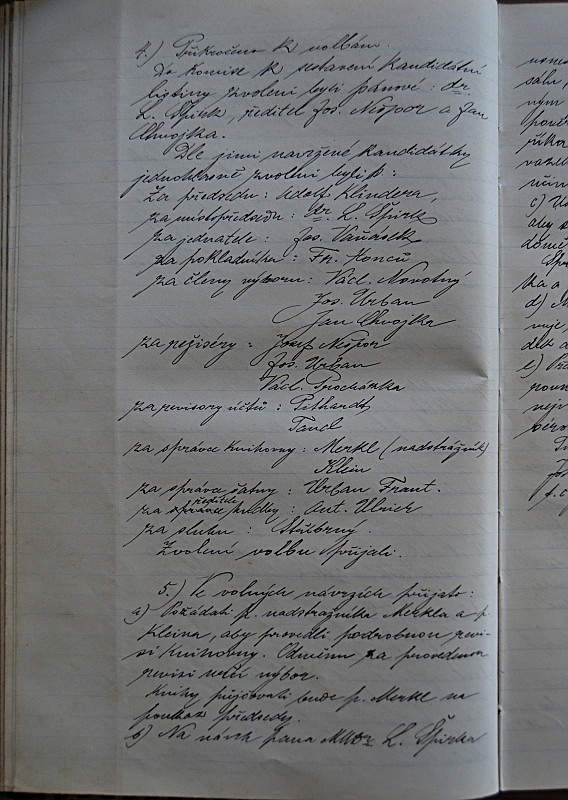 4.) Přikročeno k volbám.
Do komise k sestavení kandidátní
listiny zvoleni byli pánové : dr.
L. Špirk, ředitel Jos. Nešpor a Jan
Chvojka.
Dle jimi navržené kandidátky
jednohlasně zvoleni byli :
za předsedu : Adolf Klindera,
za místopředsedu : dr. L. Špirk
za jednatele : Jos. Vaňásek
za pokladníka : Fr. Honců
za členy výboru : Václ. Novotný
Jos. Urban
Jan Chvojka
za režiséry : Josef Nešpor
Jos. Urban
Václ. Procházka
za revisory účtů : Pithardt
Tancl
za správce knihovny : Merkl (nadstrážník)
Klein
za správce šatny : Urban Frant.
ředitele
za správce hudby : Ant. Ulrich
za sluhu : Stříbrný.
Zvolení volbu přijali.
5.) Ve volných návrzích přijato :
a) Požádati p. nadstrážníka Merkla a p.
Kleina, aby provedli podrobnou revi-
si knihovny. Odměnu za provedenou
revisi určí výbor.
Knihy půjčovati bude p. Merkl na
poukaz předsedy.
b) Na návrh pana MUDr. L. Špirka
nome
sálu,
ným
poně
říka
c)
aby
d)
e)